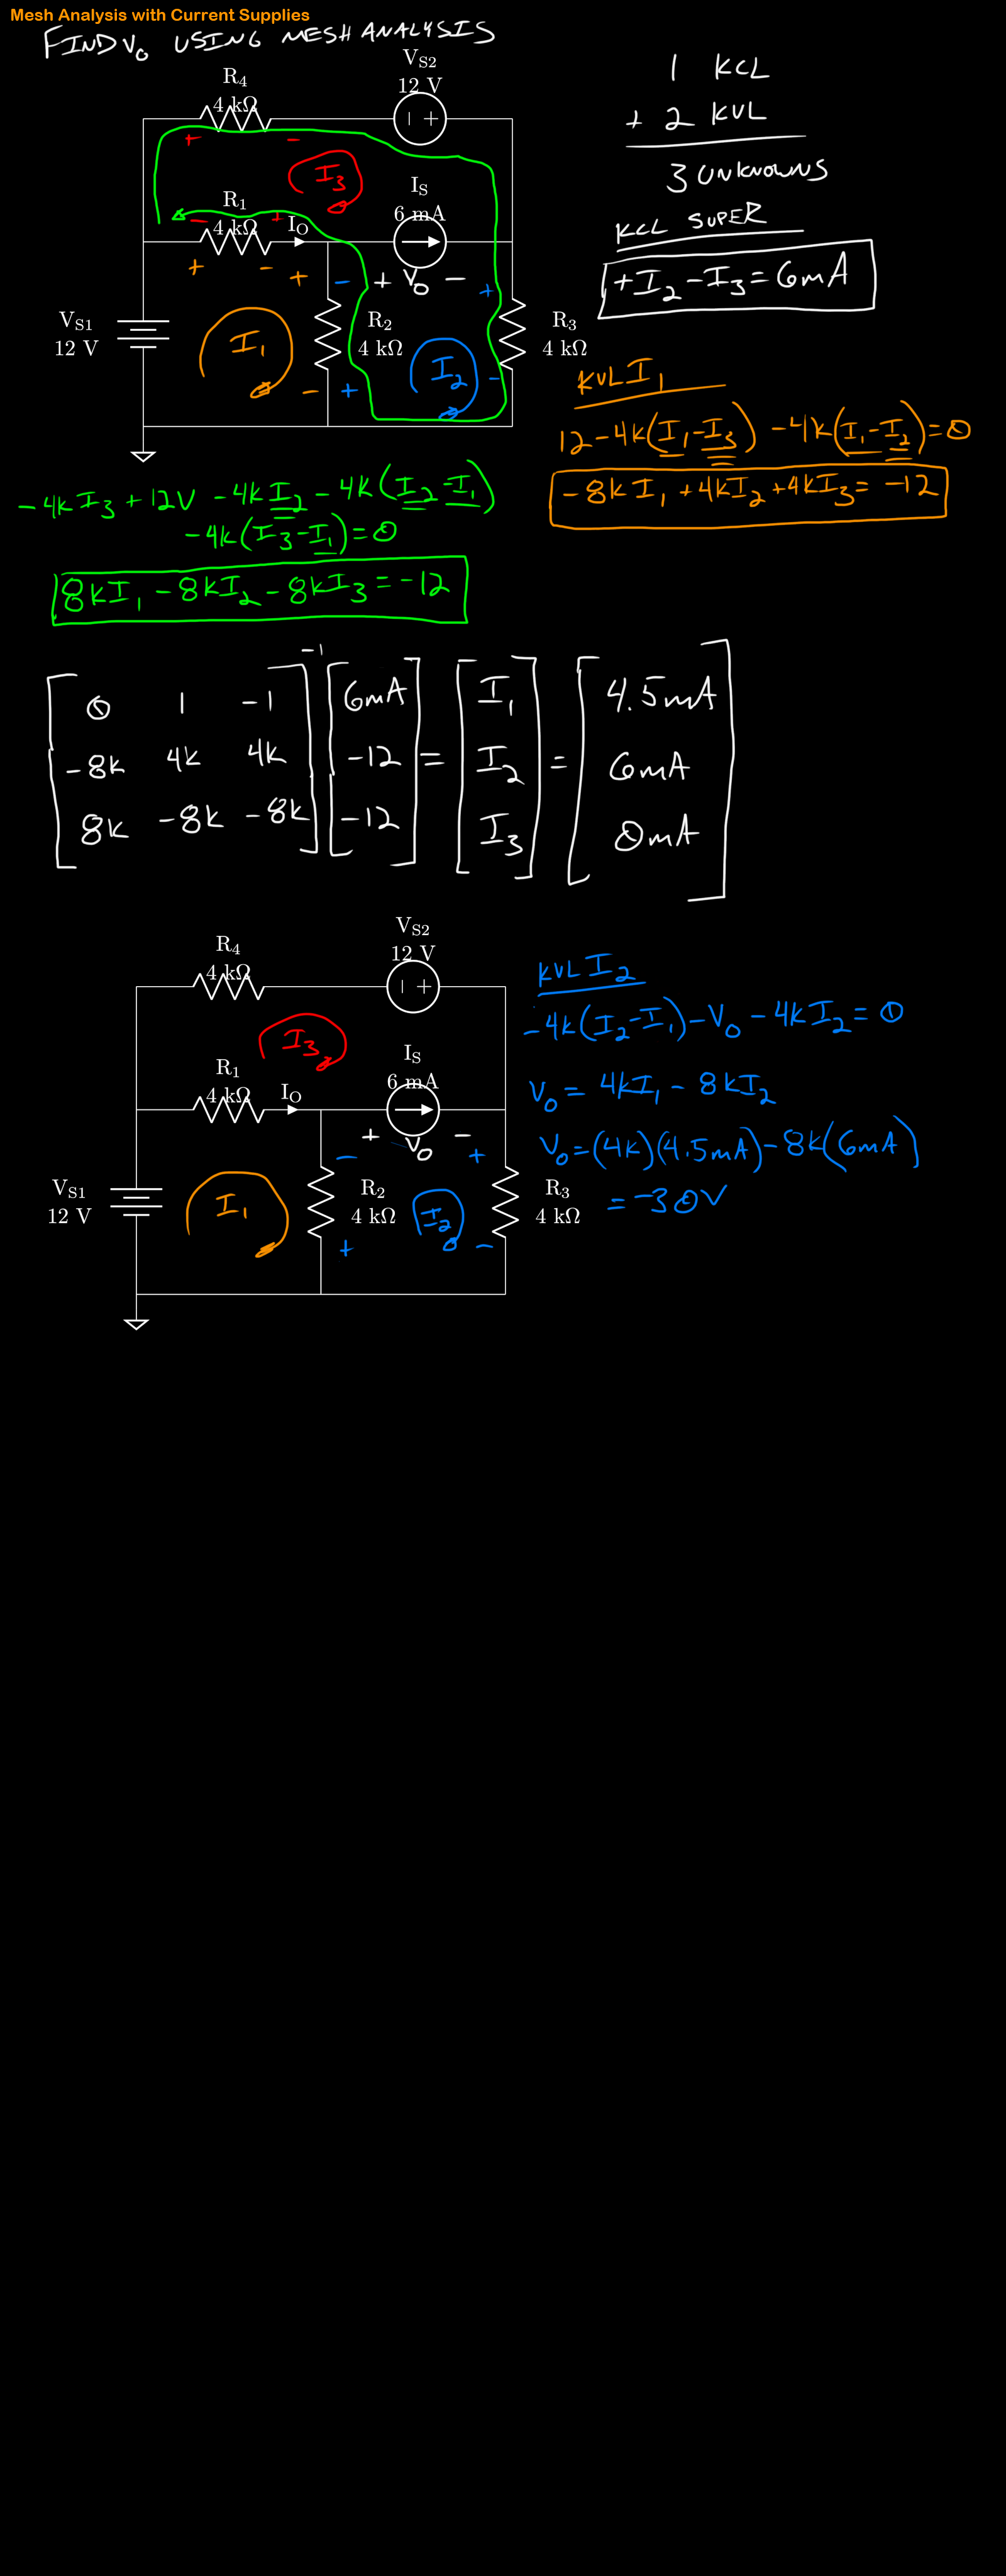 Mesh Analysis with Current Supplies
FIND V₀ USING MESH ANALYSIS
R₄
4 kΩ
V_S2
12 V
− +
+ −
I₃
R₁
4 kΩ
I_O
I_S
6 mA
− +
+ −
+ V₀ −
V_S1
12 V
I₁
+ −
R₂
4 kΩ
− +
I₂
+ −
R₃
4 kΩ
1 KCL
+ 2 KVL
3 UNKNOWNS
KCL SUPER
+I₂-I₃=6mA
KVL I₁
12-4k(I₁-I₃) -4k(I₁-I₂)=0
-8kI₁+4kI₂+4kI₃=-12
-4kI₃+12V -4kI₂-4k(I₂-I₁)
-4k(I₃-I₁)=0
8kI₁-8kI₂-8kI₃=-12
[0 1 -1]⁻¹ [6mA] [I₁] [4.5mA]
[-8k 4k 4k] [-12] = [I₂] = [6mA]
[8k -8k -8k] [-12] [I₃] [0mA]
R₄
4 kΩ
V_S2
12 V
− +
I₃
R₁
4 kΩ
I_O
I_S
6 mA
+ V₀ −
V_S1
12 V
I₁
− +
R₂
4 kΩ
I₂
+ −
R₃
4 kΩ
KVL I₂
-4k(I₂-I₁)-V₀-4kI₂=0
V₀= 4kI₁-8kI₂
V₀=(4k)(4.5mA)-8k(6mA)
=-30V